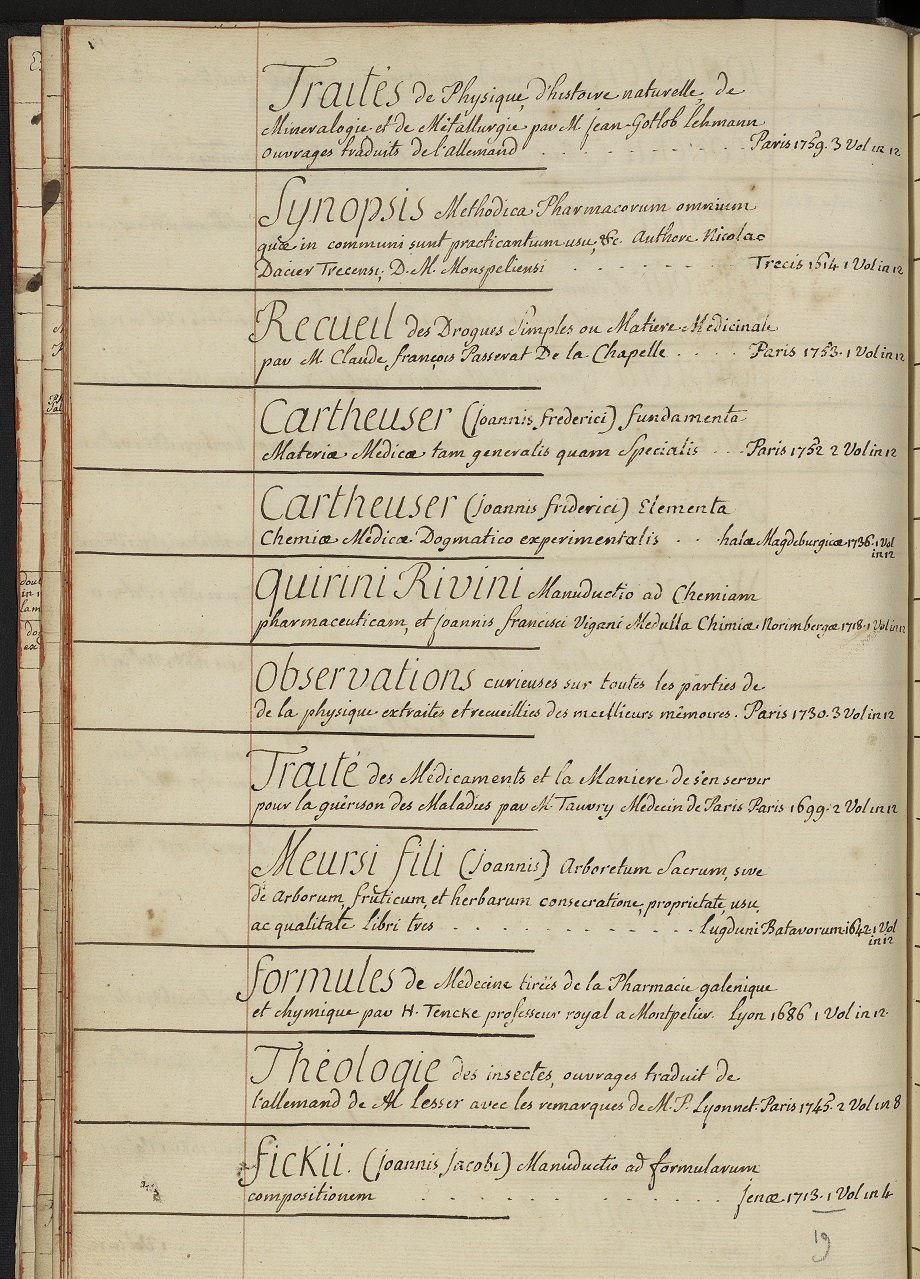 Traités de Physique, d'histoire naturelle, de
Mineralogie et de Métallurgie par M. jean-Gotlob Lehmann
Ouvrages traduits de l'allemand . . . . . . . . . Paris 1759. 3 Vol in 12
Synopsis Methodica Pharmacorum omnium
quæ in communi sunt practicantium usu, &c. Authore Nicolao
Dacier Trecensi, D. M. Monspeliensi . . . . . . Trecis 1614 1 Vol in 12
Recueil des Drogues Simples ou Matiere Médicinale
par M. Claude françois Passerat De la Chapelle . . . . Paris 1753. 1 Vol in 12
Cartheuser (joannis frederici) fundamenta
Materiæ Medicæ tam generalis quam Specialis . . . Paris 1752 2 Vol in 12
Cartheuser (joannis friderici) Elementa
Chemiæ Medicæ Dogmatico experimentalis . . halæ Magdeburgicæ 1736. 1 Vol
in 12
Quirini Rivini Manuductio ad Chemiam
pharmaceuticam, et joannis francisci Vigani Medulla Chimiæ. Norimbergæ 1718. 1 Vol in 12
Observations curieuses sur toutes les parties de
de la physique extraites et recueillies des meillieurs mémoires. Paris 1730. 3 Vol in 12
Traité des Médicaments et la Maniere de s'en servir
pour la guérison des Maladies par M. Tauvry Médecin de Paris Paris 1699. 2 Vol in 12
Meursi fili (joannis) Arboretum Sacrum, sive
de Arborum, fruticum, et herbarum consecratione, proprietate, usu,
ac qualitate Libri tres . . . . . . . . . . . Lugduni Batavorum 1642 1 Vol
in 12
formules de Médecine tirées de la Pharmacie galenique
et chymique par H. Tencke professeur royal a Montpelier. Lyon 1686 1 Vol in 12.
Théologie des insectes, ouvrages traduit de
l'allemand de M Lesser avec les remarques de M. P. Lyonnet. Paris 1745. 2 Vol in 8
fickii. (joannis jacobi) Manuductio ad formularum
compositionem . . . . . . . . . . . jenæ 1713. 1 Vol in 4
19